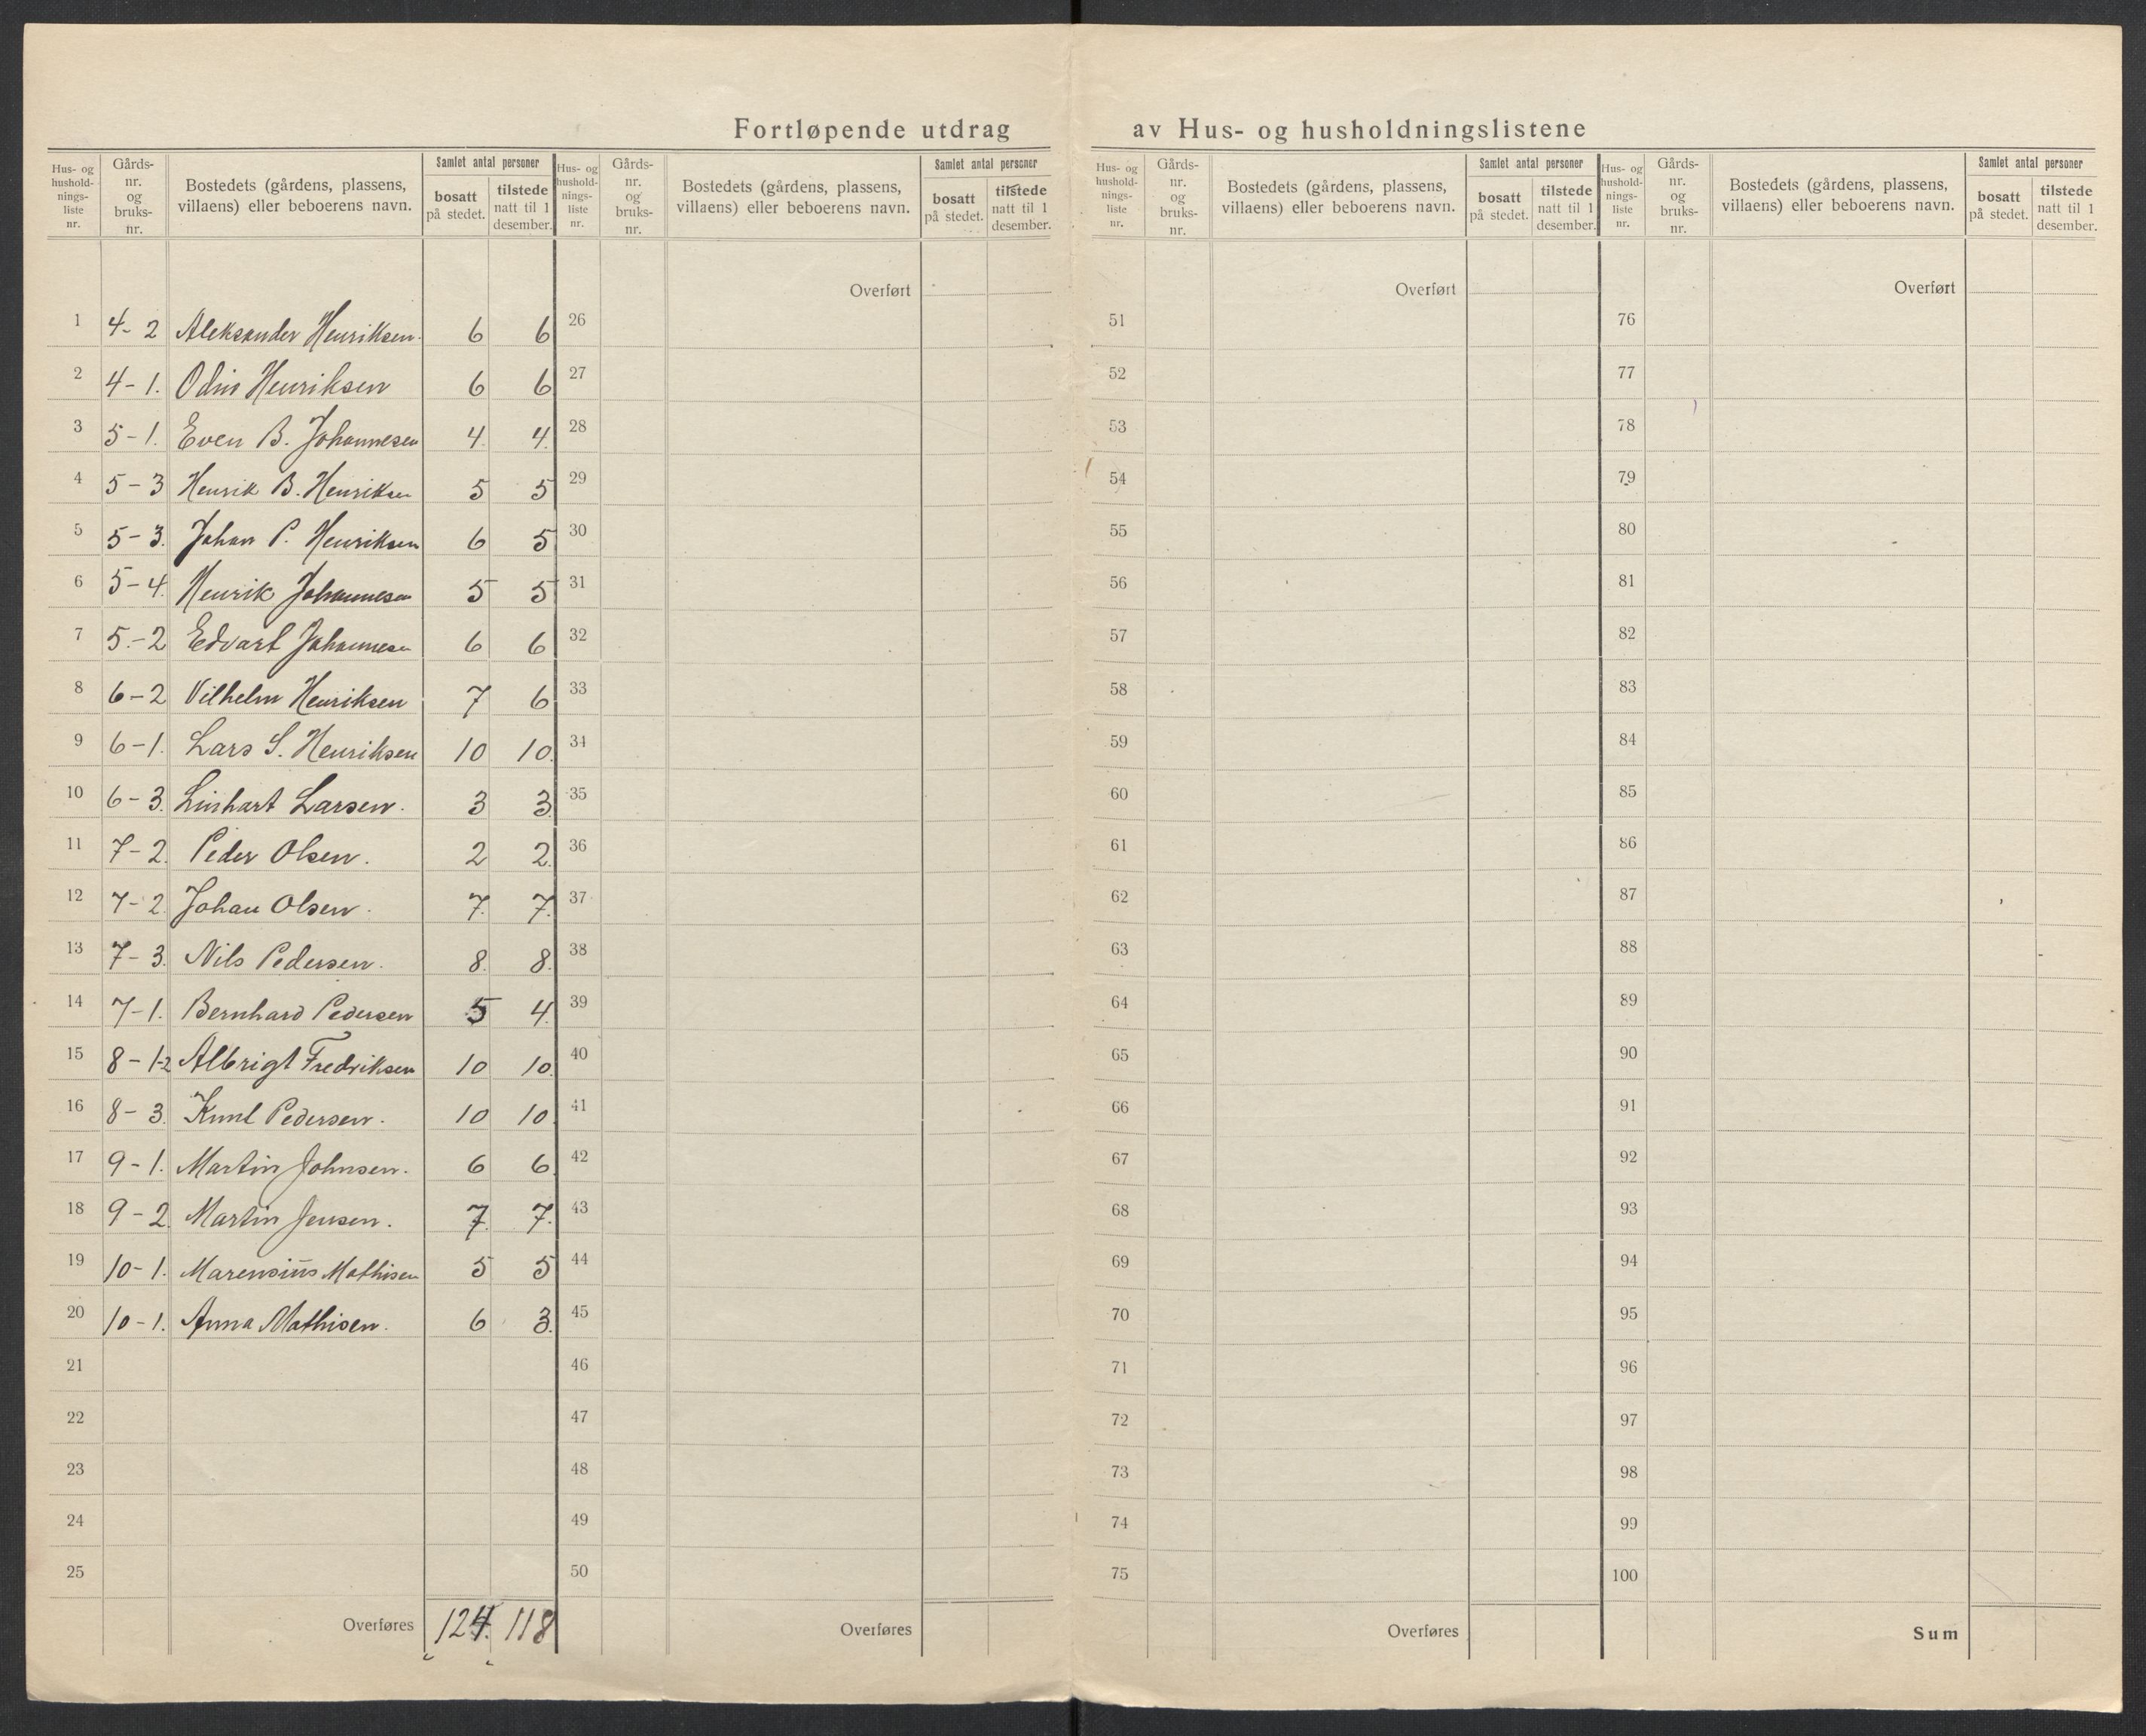 Fortløpende utdrag av Hus- og husholdningslistene
Hus- og hushold- nings- liste nr. | Gårds- nr. og bruks- nr. | Bostedets (gårdens, plassens, villaens) eller beboerens navn. | Samlet antal personer | bosatt på stedet. | tilstede natt til 1 desember.
1 4-2 Aleksander Henriksen. 6 6
2 4-1. Odin Henriksen 6 6
3 5-1. Even B. Johannesen 4. 4.
4 5-3 Henrik B. Henriksen 5 5
5 5-3. Johan P. Henriksen 6 5
6 5-4. Henrik Johannesen 5 5
7 5.-2 Edvart Johannesen 6 6
8 6-2 Vilhelm Henriksen 7 6
9 6-1. Lars S. Henriksen 10 10.
10 6-3. Linhart Larsen. 3 3
11 7-2. Peder Olsen. 2 2.
12 7-2. Johan Olsen. 7. 7.
13 7-3. Nils Pedersen. 8. 8.
14 7-1. Bernhard Pedersen 5 4.
15 8-1-2 Albrigt Fredriksen 10 10.
16 8-3. Knut Pedersen. 10 10.
17 9-1. Martin Johnsen. 6 6.
18 9-2. Martin Jensen. 7. 7.
19 10-1. Marensius Mathisen 5 5
20 10-1. Anna Mathisen. 6 3.
21
22
23
24
25
Overføres 124. 118
Hus- og hushold- nings- liste nr. | Gårds- nr. og bruks- nr. | Bostedets (gårdens, plassens, villaens) eller beboerens navn. | Samlet antal personer | bosatt på stedet. | tilstede natt til 1 desember.
Overført
26
27
28
29
30
31
32
33
34
35
36
37
38
39
40
41
42
43
44
45
46
47
48
49
50
Overføres
Hus- og hushold- nings- liste nr. | Gårds- nr. og bruks- nr. | Bostedets (gårdens, plassens, villaens) eller beboerens navn. | Samlet antal personer | bosatt på stedet. | tilstede natt til 1 desember.
Overført
51
52
53
54
55
56
57
58
59
60
61
62
63
64
65
66
67
68
69
70
71
72
73
74
75
Overføres
Hus- og hushold- nings- liste nr. | Gårds- nr. og bruks- nr. | Bostedets (gårdens, plassens, villaens) eller beboerens navn. | Samlet antal personer | bosatt på stedet. | tilstede natt til 1 desember.
Overført
76
77
78
79
80
81
82
83
84
85
86
87
88
89
90
91
92
93
94
95
96
97
98
99
100
Sum